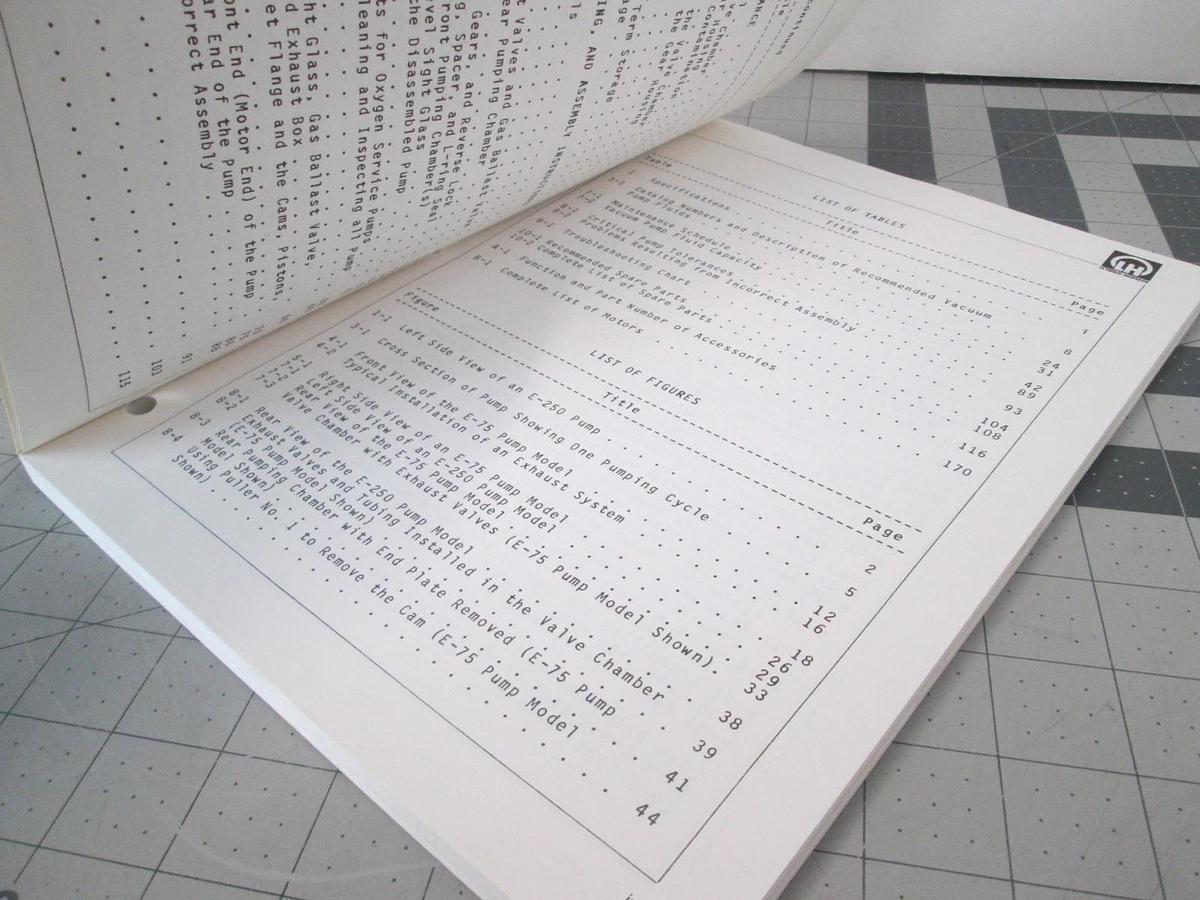 CONTINUED
the Gear Housing
Term Storage
ING, AND ASSEMBLY
ls
t Valves and Gas Ballast
ear Pumping Chamber
Gears, and Reverse Lock
g, Spacer, and L-ring Seal
ront Pumping Chamber(s)
vel Sight Glass
he Disassembled Pump
ts for Oxygen Service Pumps
leaning and Inspecting all Pump
ht Glass, Gas Ballast Valve,
d Exhaust Box
et Flange and the Cams, Pistons,
ont End (Motor End) of the Pump
ar End of the Pump
orrect Assembly
91
101
115
LH
LIST OF TABLES
Table Title Page
1 Specifications 1
3-1 Catalog Numbers and Description of Recommended Vacuum
Pump Fluids 8
7-1 Maintenance Schedule 24
7-2 Vacuum Pump Fluid Capacity 31
8-1 Critical Pump Tolerances 42
8-2 Problems Resulting from Incorrect Assembly 89
9-1 Troubleshooting Chart 93
10-1 Recommended Spare Parts 104
10-2 Complete List of Spare Parts 108
A-1 Function and Part Number of Accessories 116
B-1 Complete List of Motors 170
LIST OF FIGURES
Figure Title Page
1-1 Left Side View of an E-250 Pump 2
3-1 Cross Section of Pump Showing One Pumping Cycle 5
4-1 Front View of the E-75 Pump Model 12
4-2 Typical Installation of an Exhaust System 16
5-1 Right Side View of an E-75 Pump Model 18
7-1 Left Side View of an E-250 Pump Model 26
7-2 Rear View of the E-75 Pump Model 29
7-3 Valve Chamber with Exhaust Valves (E-75 Pump Model Shown) 33
8-1 Rear View of the E-250 Pump Model 38
8-2 Exhaust Valves and Tubing Installed in the Valve Chamber
(E-75 Pump Model Shown) 39
8-3 Rear Pumping Chamber with End Plate Removed (E-75 Pump
Model Shown) 41
8-4 Using Puller No. 1 to Remove the Cam (E-75 Pump Model
Shown) 44